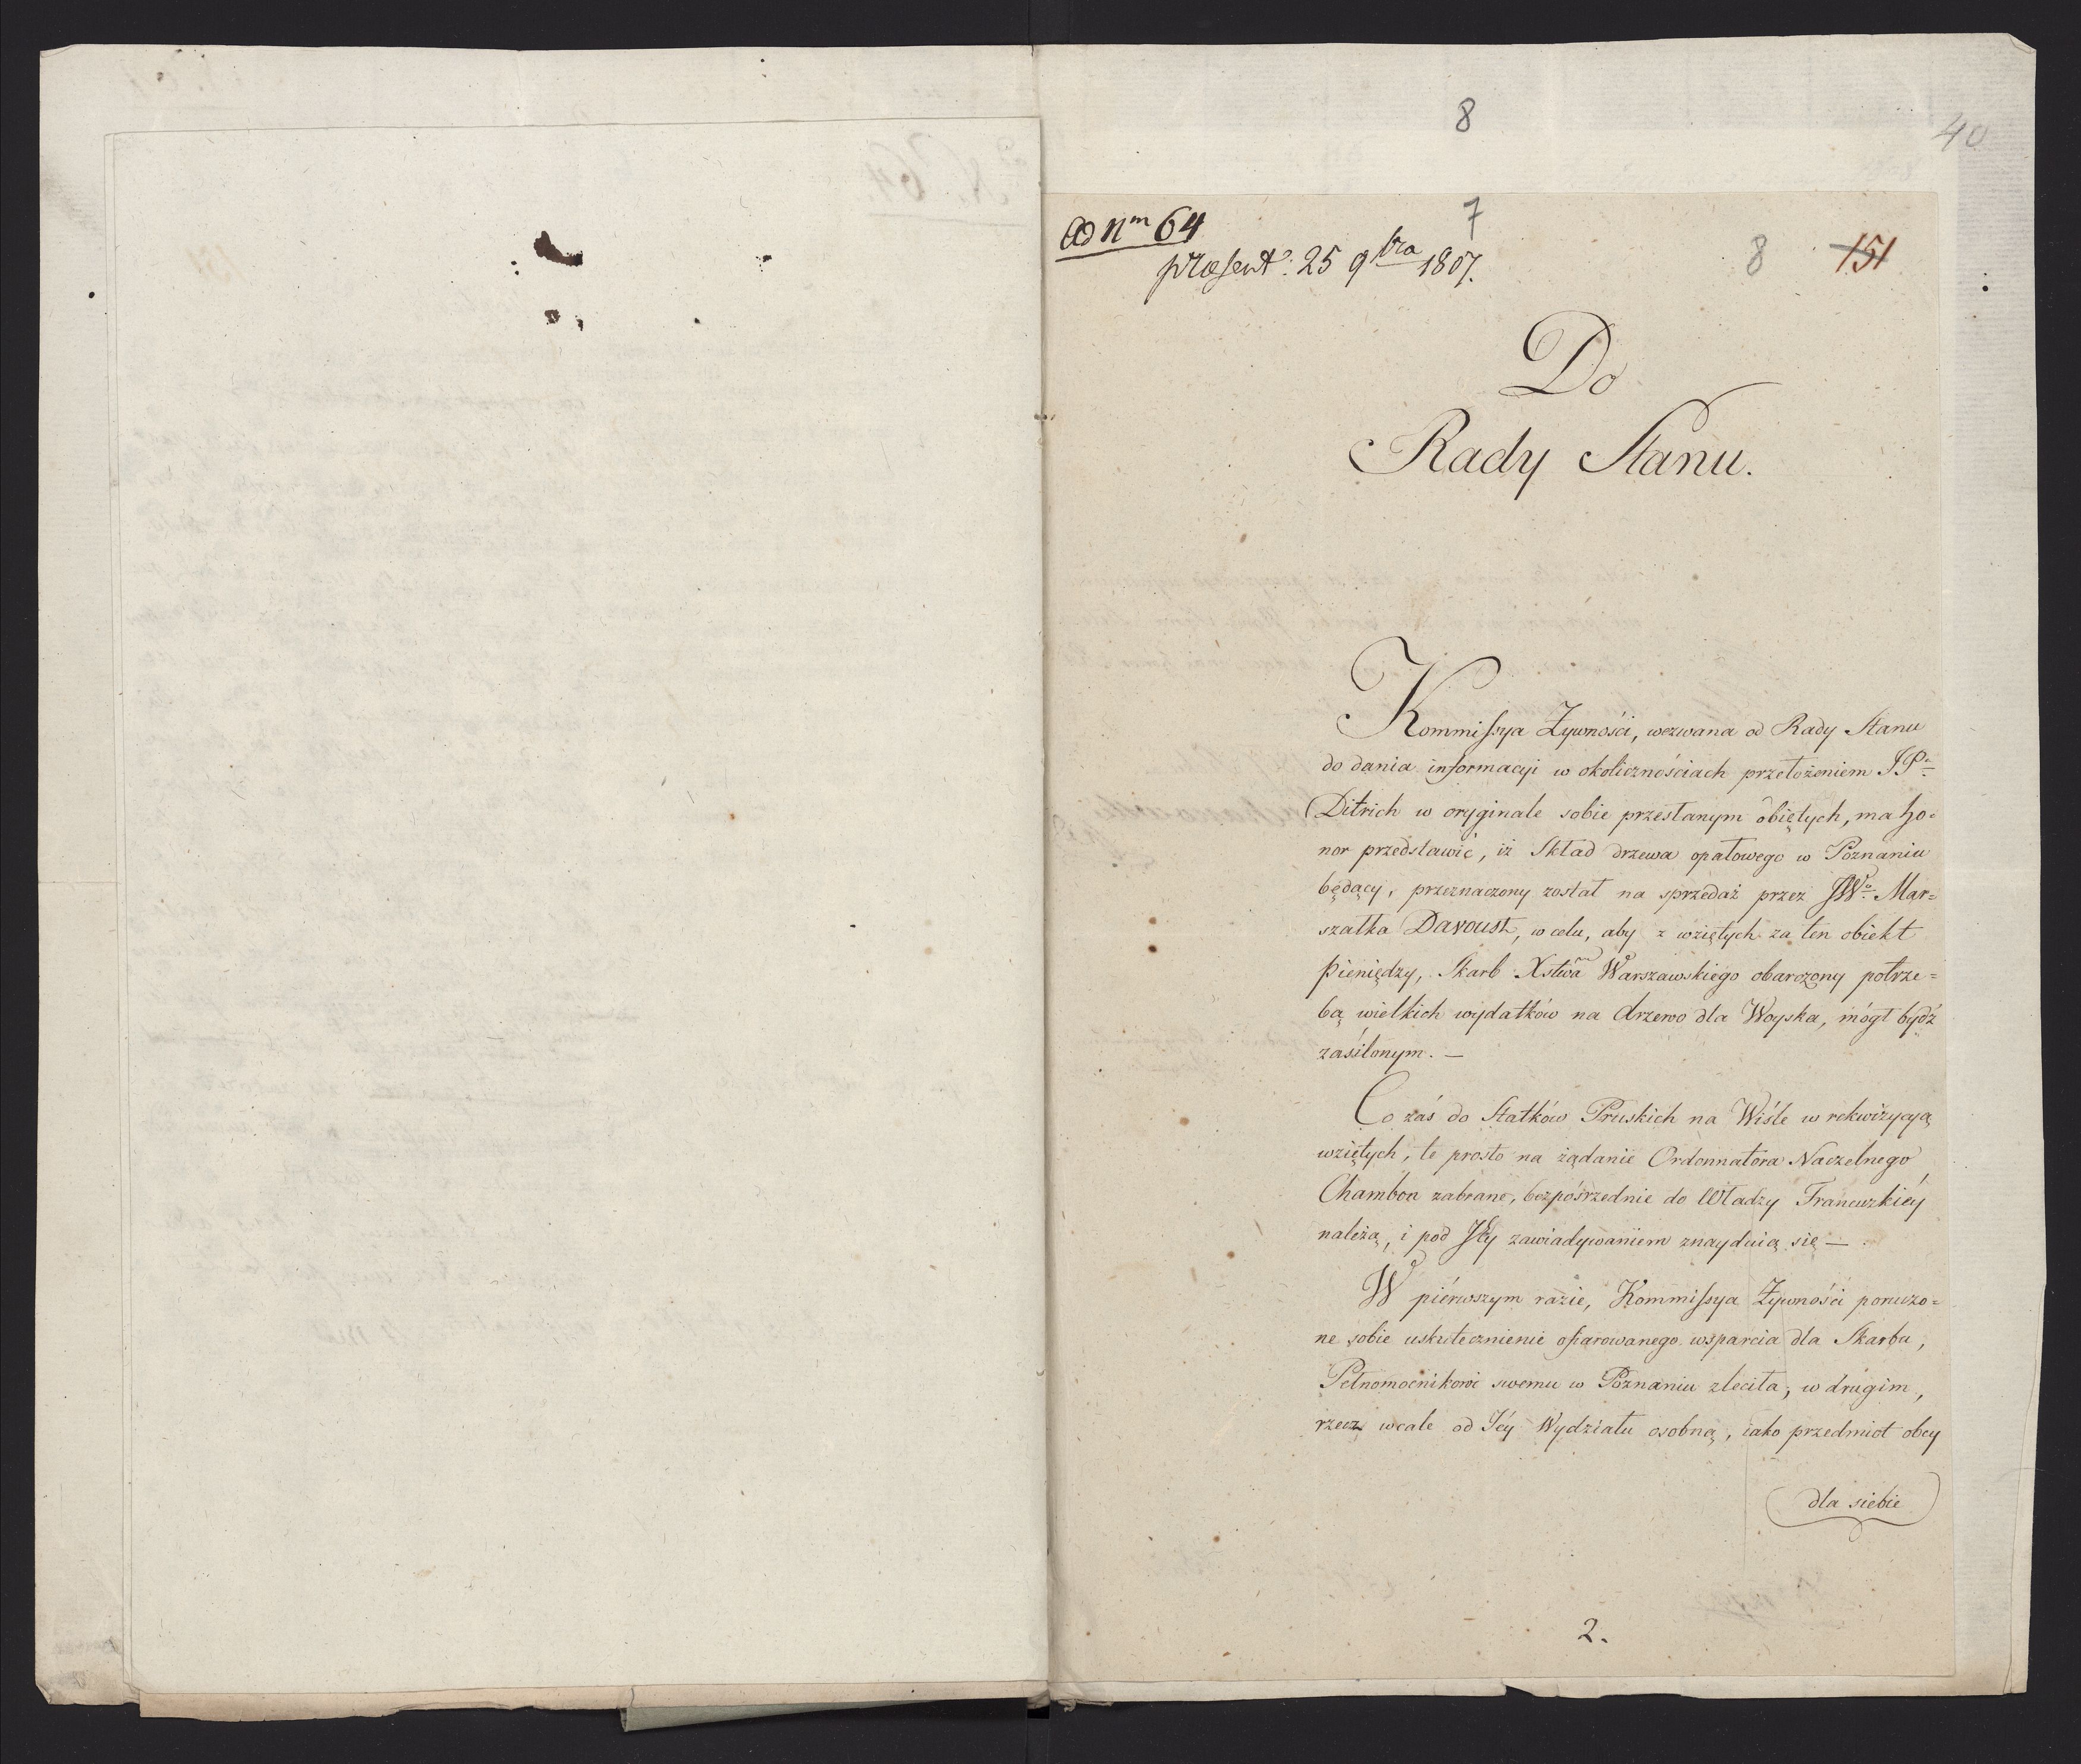 8
40
Ad Nm 64
7
præsent: 25 9bra 1807.
8 151
Do
Rady Stanu.
Kommissya Żywności, wezwana od Rady Stanu
do dania informacyi w okolicznościach przełożeniem JPa
Ditrich w oryginale sobie przesłanym obiętych, ma ho-
nor przedstawić, iż Skład drzewa opałowego w Poznaniu
będący, przeznaczony został na sprzedaż przez JWo Mar=
szałka Davoust, w celu, aby z wziętych za ten obiekt
pieniędzy, Skarb Xstwa Warszawskiego obarczony potrze=
bą wielkich wydatków na drzewo dla Woyska, mógł bydź
zasilonym. —
Co zaś do Statków Pruskich na Wiśle w rekwizycyą
wziętych, te prosto na żądanie Ordonnatora Naczelnego
Chambon zabrane, bezpośrzednie do Władzy Francuzkiéy
należą, i pod Jéy zawiadywaniem znayduią się —
W piérwszym razie, Kommissya Żywności poruczo=
ne sobie uskutecznienie ofiarowanego wsparcia dla Skarbu,
Pełnomocnikowi swemu w Poznaniu zleciła, w drugim,
rzecz wcale od Jéy Wydziału osobną, iako przedmiot obcy
dla siebie
2.